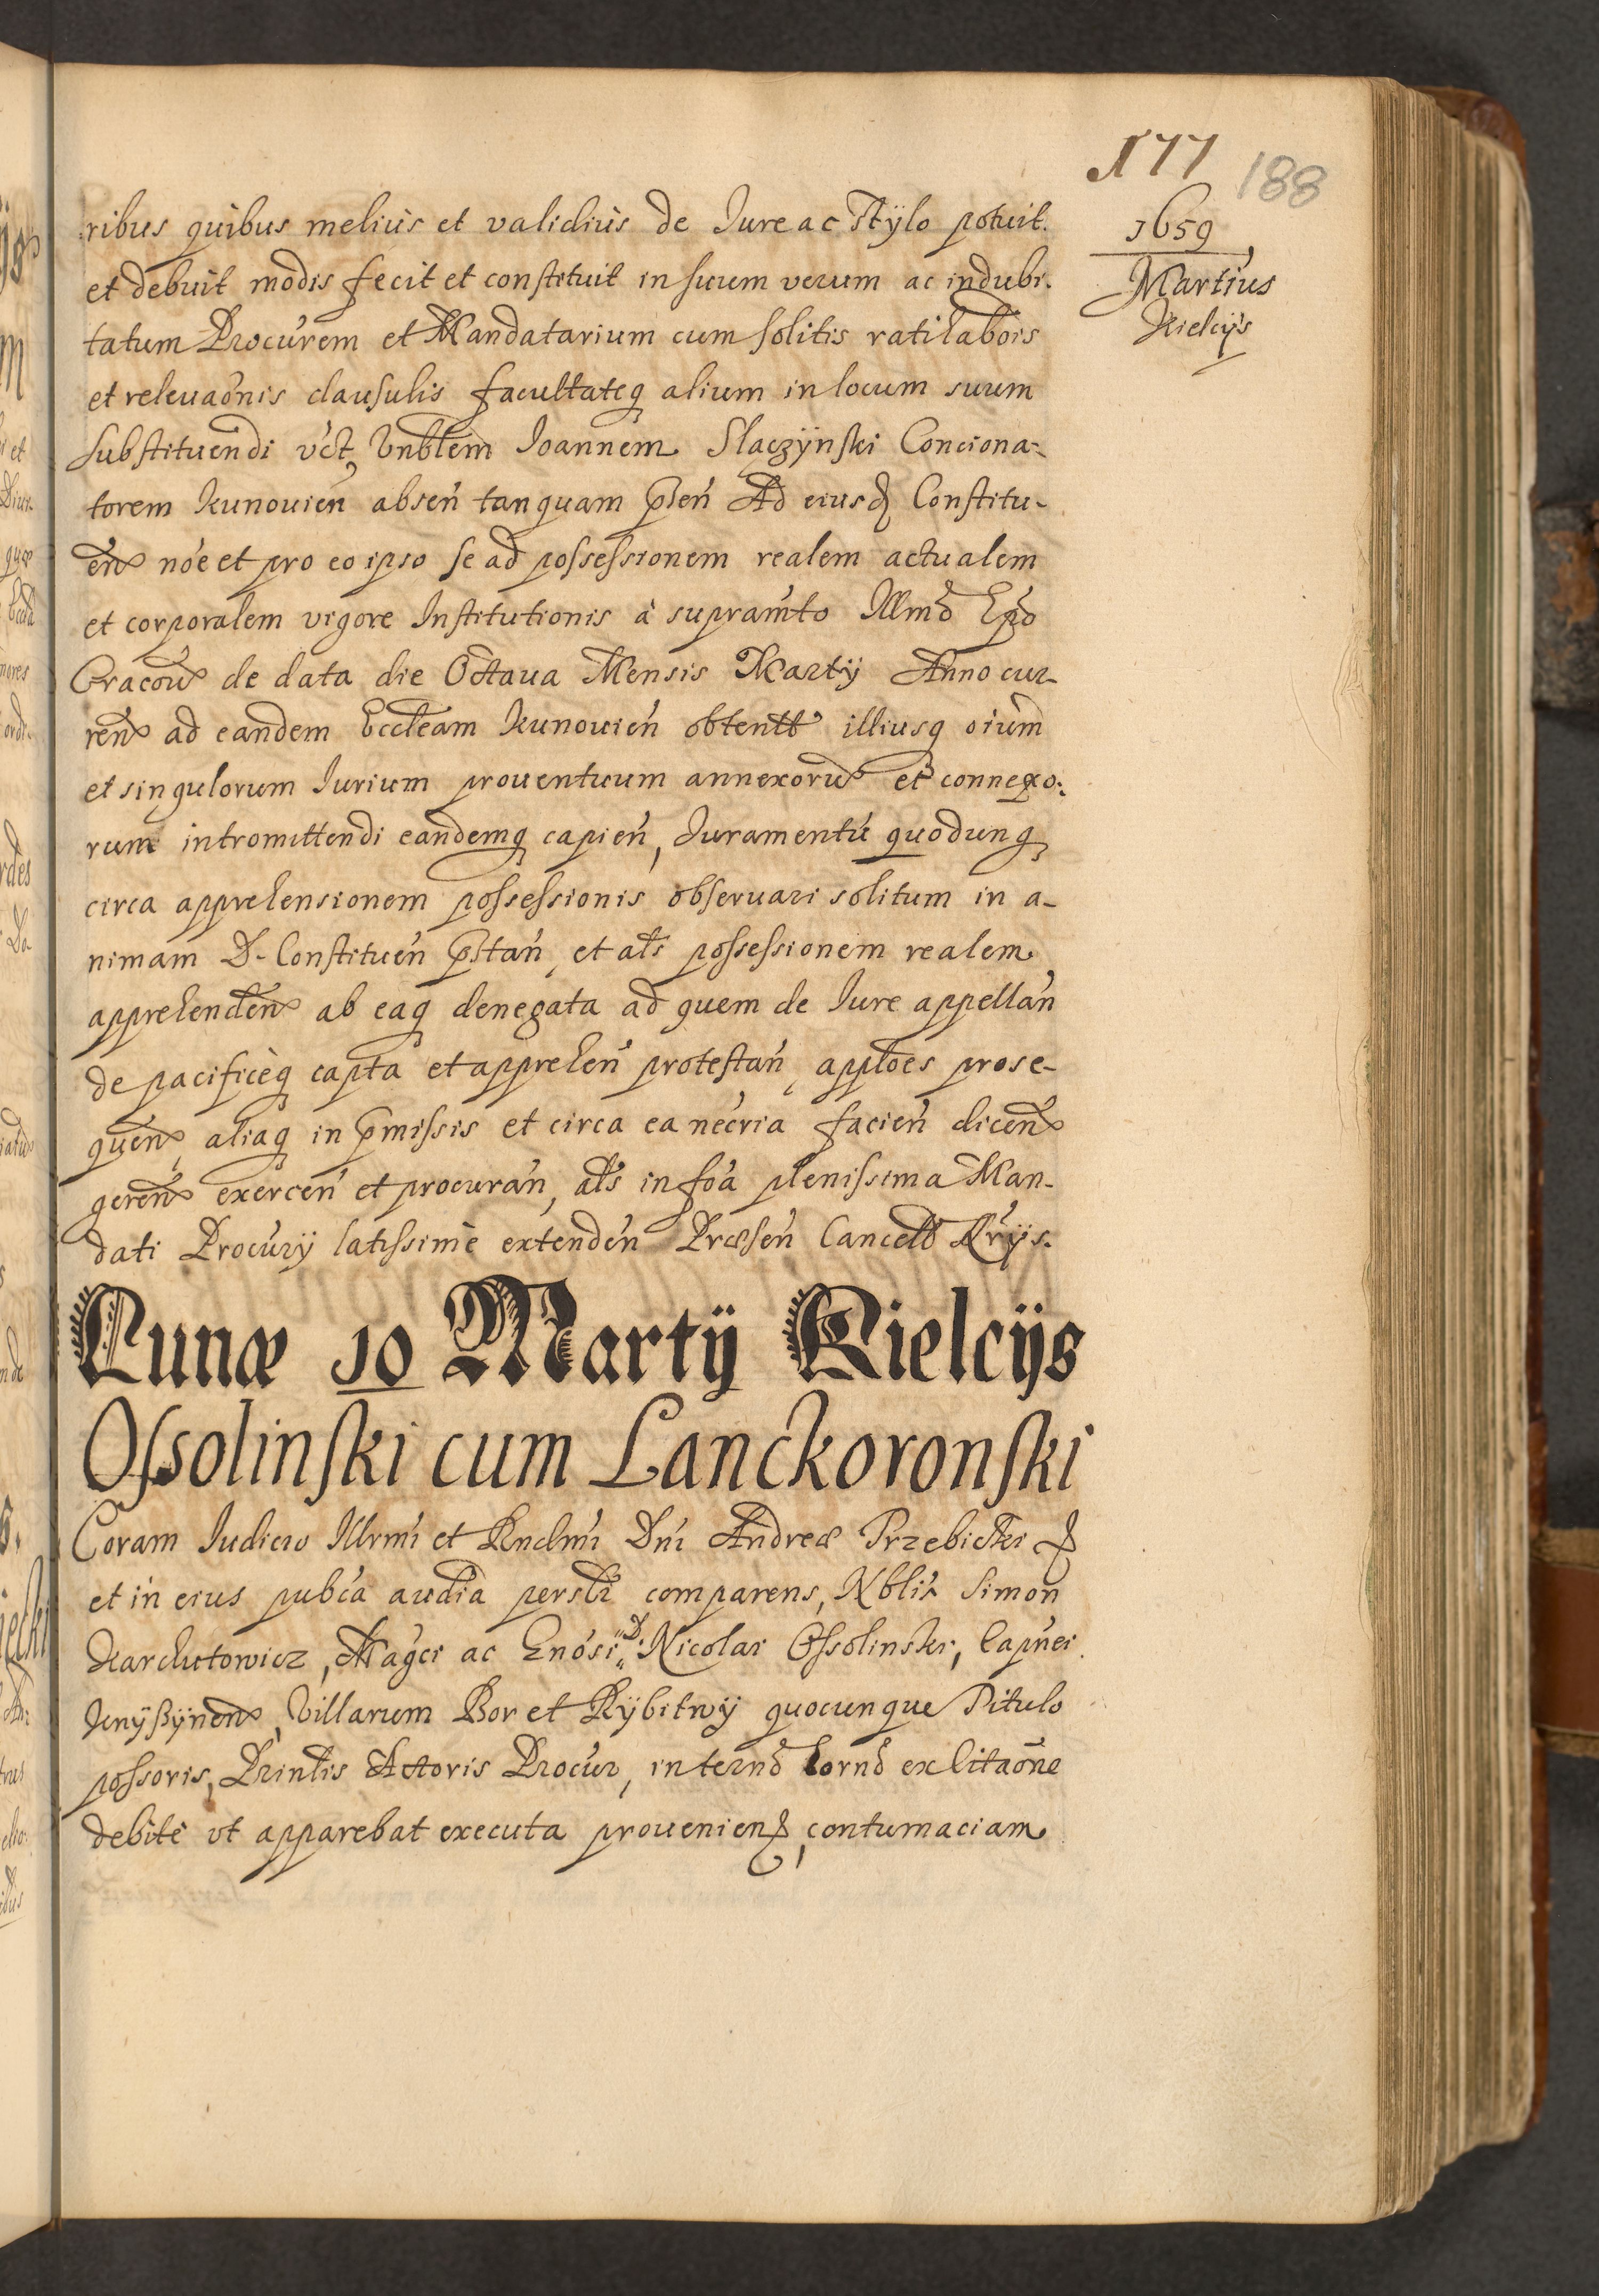 177 188
1659
Martius
Kielcijs
ribus quibus meliùs et validiùs de Jure ac Stÿlo potuit
et debuit modis fecit et constituit in suum verum ac indubi-
tatum Procúrem et Mandatarium cum solitis ratihabõis
et releuaõnis clausulis facultateq alium in locum suum
substituendi v́ct, Vnblem Joannem Slaczÿnski Conciona-
torem Kunouień absen̄ tanquam p̄sen̄ Ad eiusd Constitu-
en̄ nóe et pro eo ipso se ad possessionem realem actualem
et corporalem vigore Institutionis à supram̄to Illmo Epõ
Cracou̅ de data die Octaua Mensis Martij Anno cur-
ren̄ ad eandem Eccleam Kunouień obtent illiusq oium
et singulorum Jurium prouentuum annexoru et connexo-
rum intromittendi eandemq capień, Juramentū quodcunq
circa apprehensionem possessionis obseruari solitum in a-
nimam D. Constituen̄ p̄stan̄, et als possessionem realem
apprehenden̄ ab eaq denegata ad quem de Jure appellan̄
de pacificèq capta et apprehen̄ protestan̄, apptoes prose-
quen̄, aliaq in p̄missis et circa ea necria facień dicen̄
geren̄ exercen̄ et procuran̄, als in foa plenissima Man-
dati Procurij latissimè extenden̄ Præsen̄ Cancell Nrijs.
Lunæ 10 Martij Kielcijs
Ossolinski cum Lanckoronski
Coram Judicio Illrmi et Rndmi Dni Andreæ Trzebicki
et in eius pubca audia perslr comparens, Nblis Simon
Karchutowicz, Magci ac Gnosi D. Nicolai Ossolinski, Capnei
Knÿßÿnen̄, Villarum Bor et Rÿbitwÿ quocunque Titulo
possoris, Printis Actoris Procur, in termo horno ex Citaõne
debitè vt apparebat executa prouenien, contumaciam